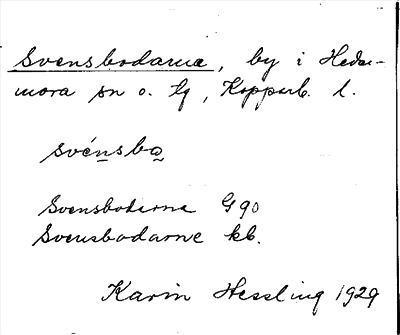 Svensbodarna, by i Hede-
mora sn o. tg, Kopparb. l.
svénsbo
Svensboderne G 90
Svensbodarne kb.
Karin Hessling 1929